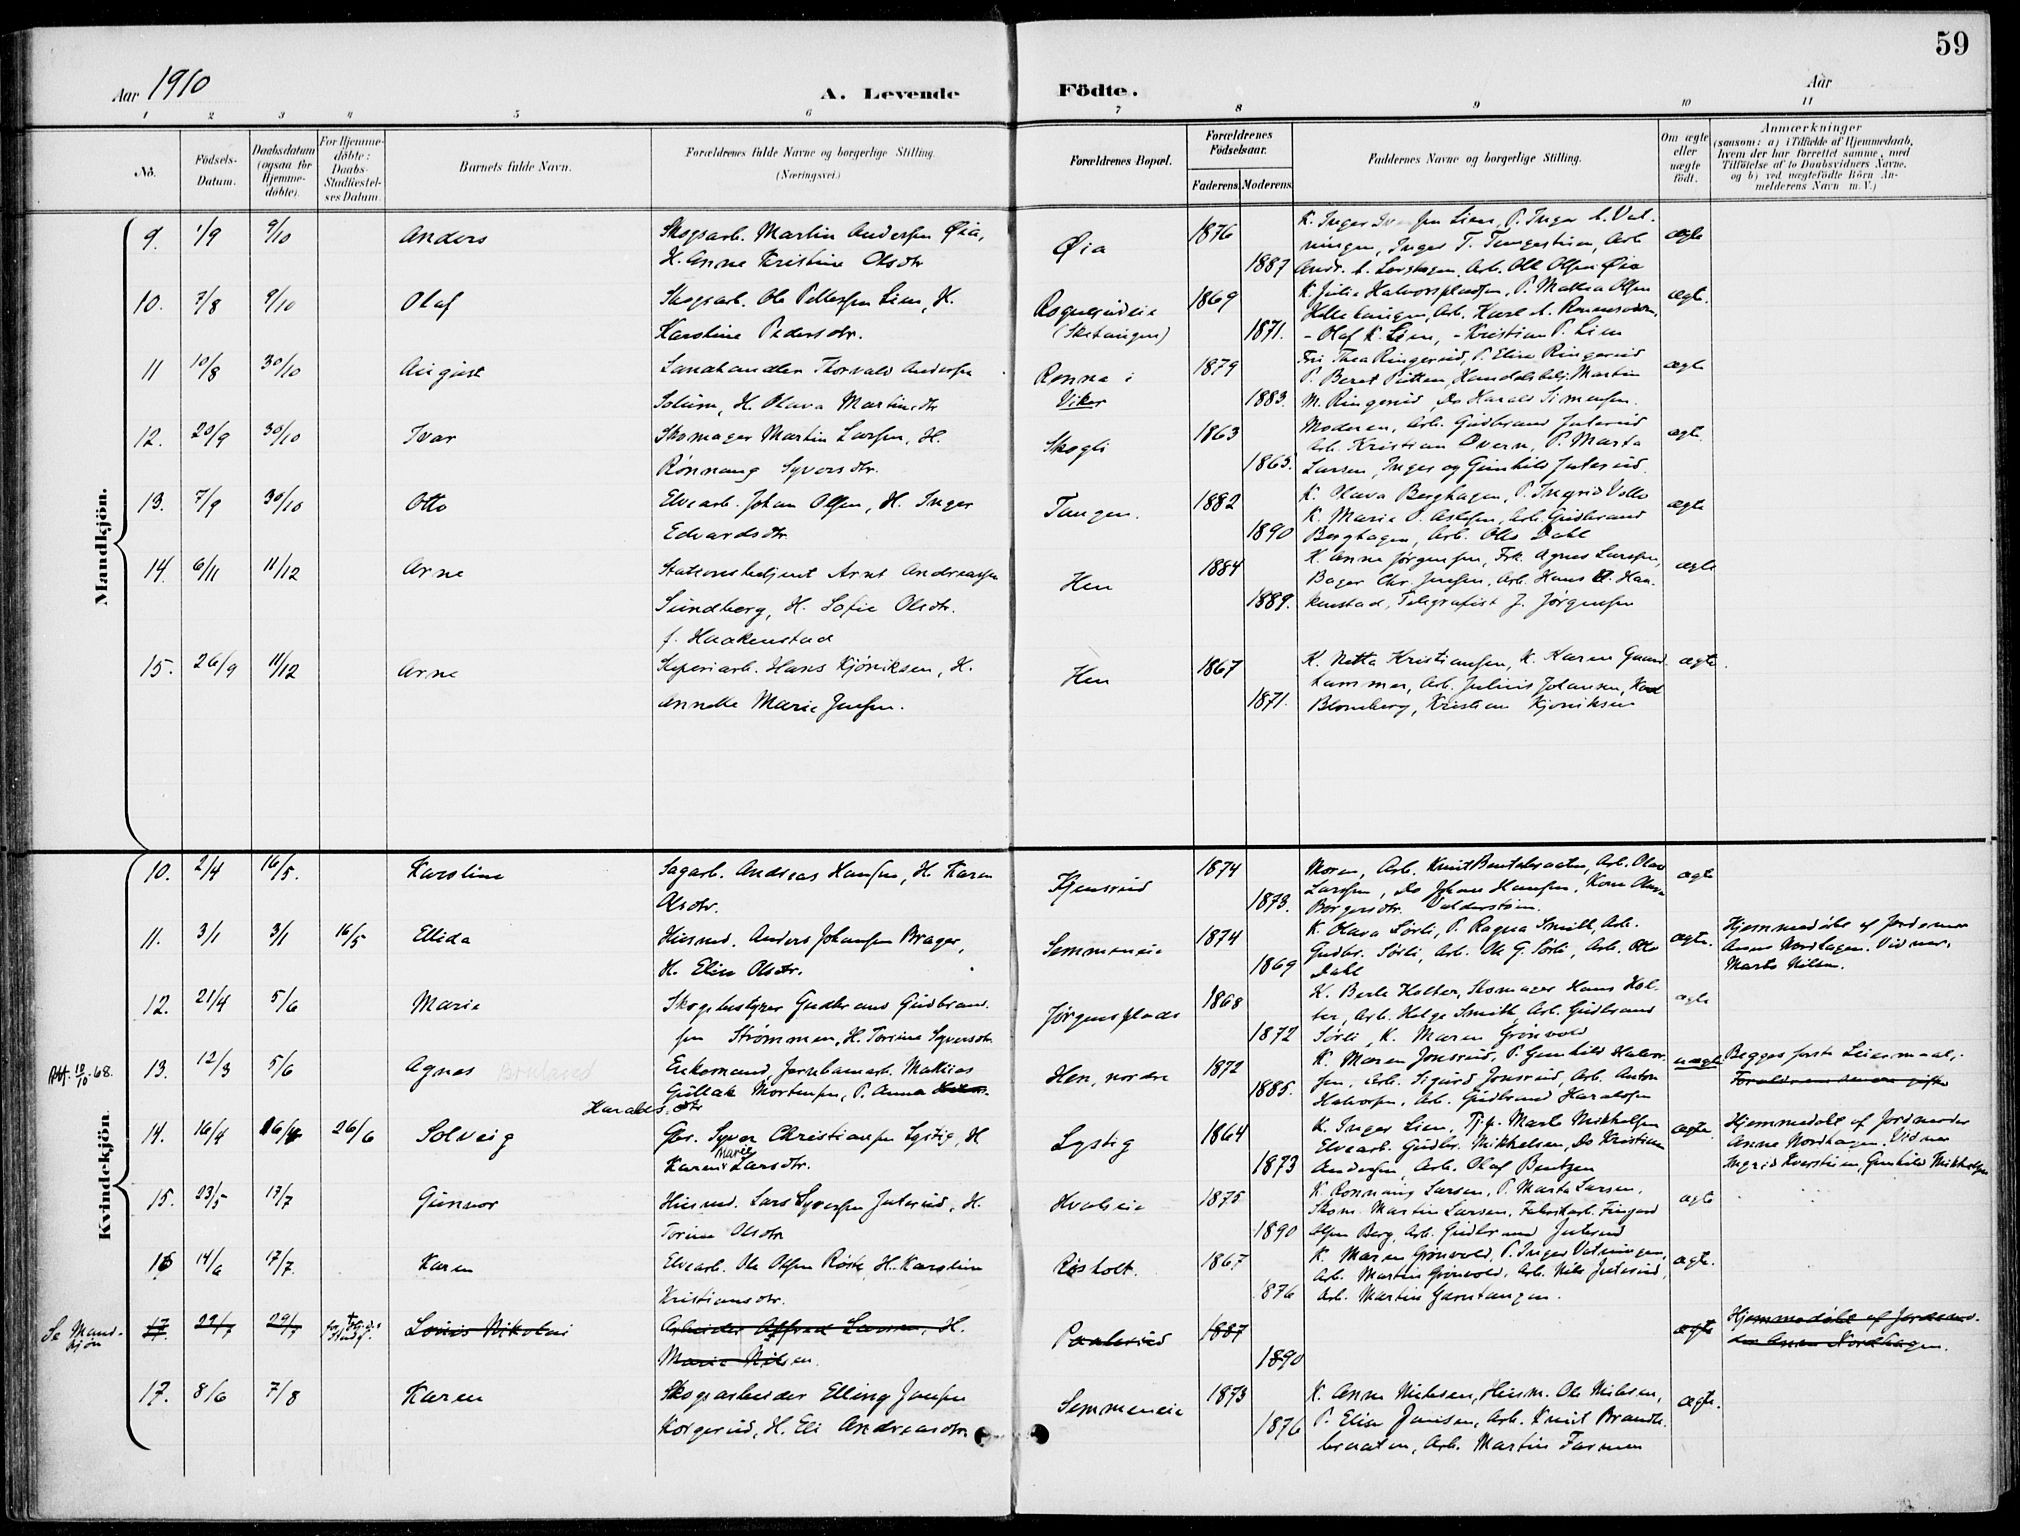 59
Aar 1910
A. Levende
Födte.
Aar
1 2 3 4 5 6 7 8 9 10 11
No.
Födsels-Datum.
Daabsdatum (ogsaa for Hjemme-döbte).
For Hjemme-döbte: Daabs-Stadfæstel-ses Datum.
Barnets fulde Navn.
Forældrenes fulde Navne og borgerlige Stilling.
(Næringsvei.)
Forældrenes Bopæl.
Forældrenes Födselsaar.
Faderens. Moderens.
Faddernes Navne og borgerlige Stilling.
Om ægte eller uægte födt.
Anmærkninger
(saasom: a) i Tilfælde af Hjemmedaab,
hvem der har forrettet samme, med
Tilföielse af to Daabsvidners Navne,
og b) ved uægtefödte Börn An-
melderens Navn m. V.)
Mandkjön.
9. 1/9 9/10 Anders
Skogsarb. Martin Andersen Øia,
H. Anne Kristine Olsdtr
Øia
1876
1887
K. Inger Iversen Lien, P. Inger A. Vel-
ningen, Inger T. Tangestuen, Arb
Andr. A. Berghagen, Arb. Ole Olsen Øia
ægte
10. 7/8 9/10 Olaf
Skogsarb. Ole Pettersen Lien, H.
Karoline Pedersdtr.
(Sketangen)
1869
1871.
K. Julie Halvorspladsen, P. Mathea Olsen
- Olaf K. Lien, - Kristian P. Lien
ægte.
11 10/8 30/10 August
Landhandler Thorvald Andersen
Solum, H. Olava Martinsdtr
Rønna i
Viker
1879
1883.
Fru Thea Ringerud, P. Elise Ringerud
P. Beret Putten, Handelsbetj. Martin
M. Ringerud, Do Harald Simensen.
ægte
12. 20/9 30/10 Ivar
Skomager Martin Larsen, H.
Rønnaug Syversdtr.
Skogli
1863
1865.
Moderen, Arb. Gudbrand Juterud
Arb. Kristian Overn, P. Marta
Larsen, Inger og Gunhild Juterud.
ægte
13. 7/9 30/10 Otto
Elvearb. Johan Olsen, H. Inger
Edvardsdtr.
Tangen.
1882
1890
K. Olava Berghagen, P. Ingrid Velta
K. Marie P. Aslesen, Arb. Gudbrand
Berghagen, Arb. Otto Dahl
ægte
14. 6/11 11/12 Arne
Stationsbetjent Arnt Andreassen
Sundberg, H. Sofie Olsdtr.
f. Haakenstad
Hen
1884
1889.
K. Anne Jørgensen, Frk. Agnes Larsen,
Bager Chr. Jensen, Arb. Hans O. Haa-
kenstad, Telegrafist J. Jørgensen
ægte
15. 26/9 11/12 Arne
Sliperiarb. Hans Kjøniksen, H.
Annette Marie Jensen.
Hen
1867
1871.
K. Netta Kristiansen, K. Karen Gaard-
hammer, Arb. Julius Johansen, Karl
Blomberg, Kristian Kjøniksen
ægte.
Kvindekjön.
10. 2/4 16/5. Karoline
Sagarb. Andreas Hansen, H. Karen
Olsdtr.
Kjensrud
1874
1873.
Moren, Arb. Knut Bentebraaten, Arb. Olav
Larssen, Do Johan Hansen, Kone Anna
Borgersdtr. Valderstøen.
ægte
11. 3/1 3/1 16/5 Ellida
Husmd. Anders Johansen Brager,
H. Elise Olsdtr.
Semmeneie
1874
1869
K. Olava Sørli, P. Ragna Smith, Arb.
Gudbr. Sørli, Arb. Ole G. Sørli, Arb. Otto
Dahl
ægte.
Hjemmedøbt af Jordemor
Anne Nordhagen. Vidner:
Marte Nilsen.
12. 21/4 5/6 Marie
Skogbestyrer Gudbrand Gudbrand-
sen Strømmen, H. Torine Syversdtr.
Jørgensplads
1868
1872
K. Berte Holter, Skomager Hans Hol-
ter, Arb. Helge Smith, Arb. Gudbrand
Sørli, K. Maren Grønvold
ægte
Att. 10/10-68.
13. 12/3 5/6 Agnes Bruland
Enkemand, Jernbanearb. Mathias
Gulbak Mortensen, P. Anna
Haralds. dtr
Hen, nordre
1872
1885.
K. Maren Jonsrud, P. Gunhild Halvor-
sen, Arb. Sigurd Jonsrud, Arb. Anton
Halvorsen, Arb. Gudbrand Haraldsen
uægte
Begges første Leiermaal,
Forældrene senere gifte
14. 16/4 16/4 26/6 Solveig
Gbr. Syver Christiansen Lystig, H
Karen Marie Larsdtr.
Lystig
1864
1873
K. Inger Lien, Tj.p. Marte Mikkelsen
Elvearb. Gudbr. Mikkelsen, Do Kristian
Andersen, Arb. Olaf Bentzen
ægte.
Hjemmedøbt af Jordmoder
Anne Nordhagen. Vidner
Ingrid Kverstuen, Gunhild Mikkelsen
15. 23/5 17/7 Gunvor
Husmd. Lars Syversen Juterud, H.
Torine Olsdtr
Hvalseie
1875
1890
K. Rønnaug Larsen, P. Marta Larsen,
Skom. Martin Larsen, Fabrikarb. Fingard
Olsen Berg, Arb. Gudbrand Juterud
ægte
16 14/6 17/7. Karen
Elvearb. Ole Olsen Røste, H. Karoline
Kristiansdtr.
Røsholt.
1867
1876
K. Maren Grønvold, P. Inger Velningen,
Arb. Martin Grønvold, Arb. Nils Juterud,
Arb. Martin Garntangen.
ægte.
Se Mand-
kjøn
17. 22/7 29/7 Louis Nikolai
Arbeider Alfred Larsen, H.
Marie Nilsen.
Paalerud
1887
1890
ægte
Hjemmedøbt af Jordemo-
der Anne Nordhagen.
17. 8/6 7/8 Karen
Skogsarbeider Elling Jensen
Korgerud, H. Eli Andreasdtr.
Semmeneie
1873
1876
K. Anne Nielsen, Husm. Ole Nielsen,
P. Elise Jansen, Arb. Knut Brandt-
braaten, Arb. Martin Farmen
ægte.